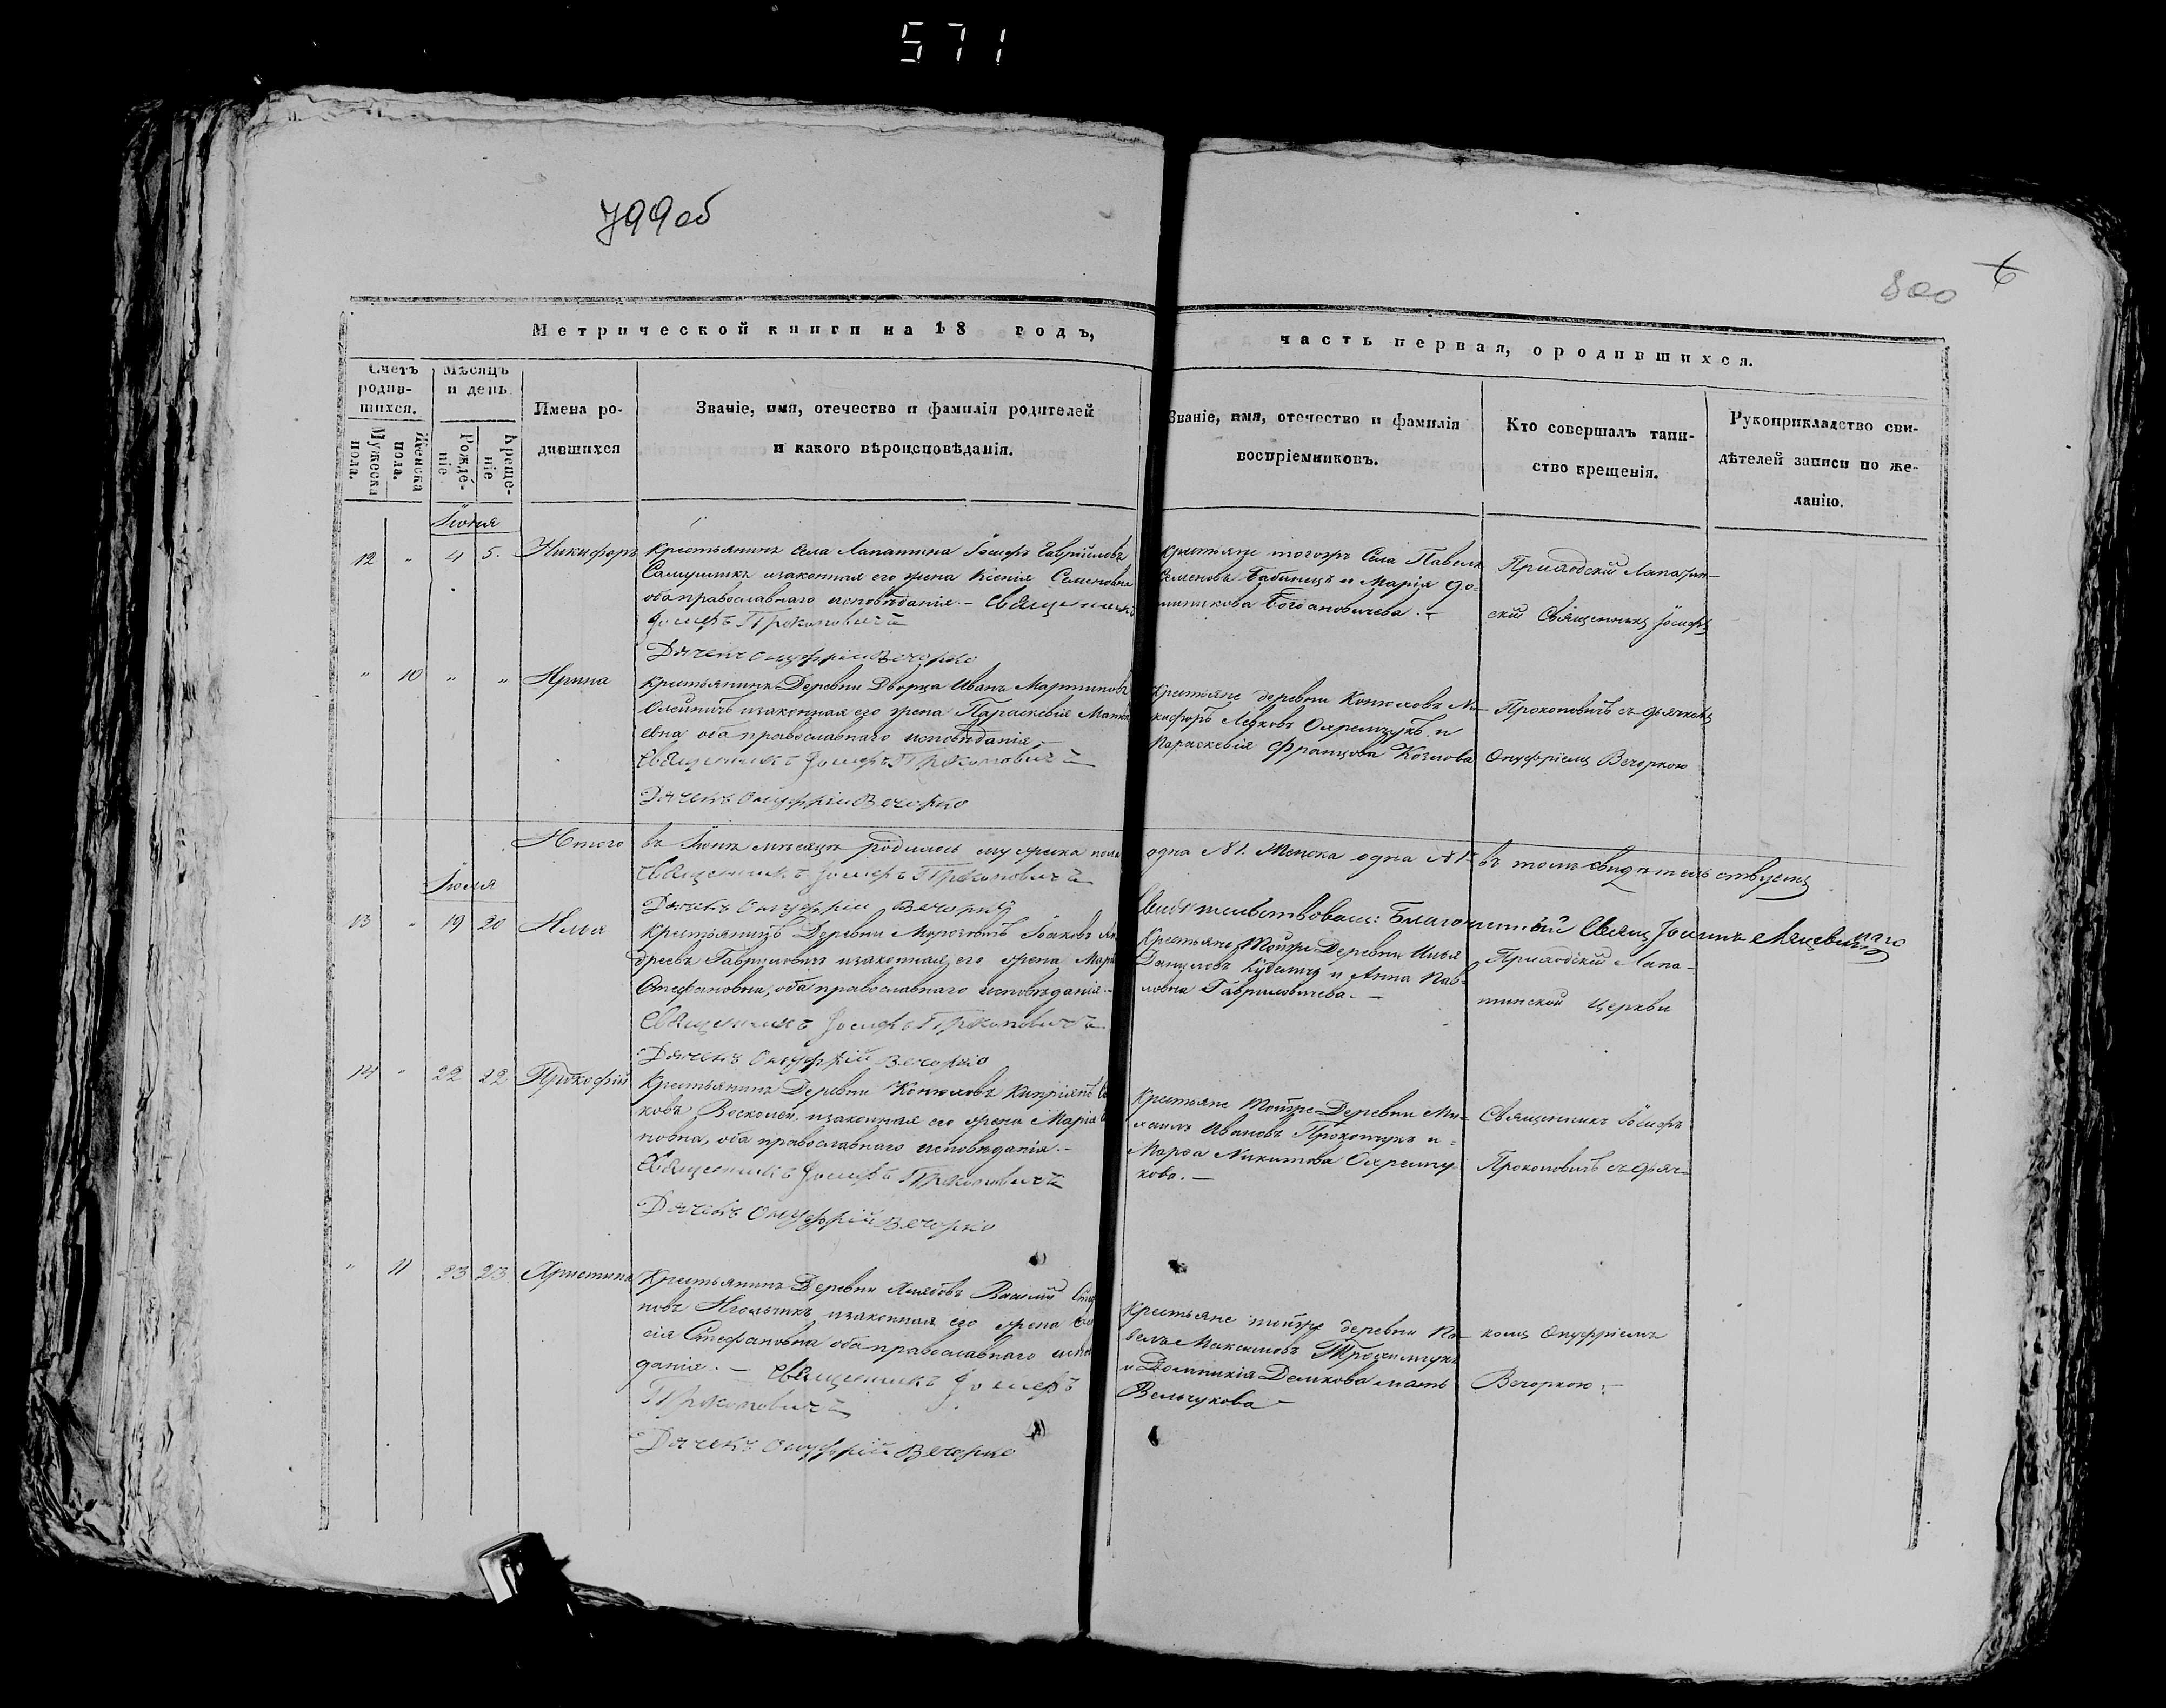 571
799об
800
6
Метрической книги на 18 годъ,
часть первая, ородившихся.
Счетъ родив-
шихся.
Мужеска пола.
Женска пола.
Мѣсяцъ и день
Рожде-
ніе
Креще-
ніе
Имена ро-
дившихся
Званіе, имя, отечество и фамилія родителей
и какого вѣроисповѣданія.
Званіе, имя, отечество и фамилія
воспріемниковъ.
Кто совершалъ таин-
ство крещенія.
Рукоприкладство сви-
дѣтелей записи по же-
ланію.
Іюня
12 " 4 5. Никифоръ
Крестьянинъ села Лапатина Іосифъ Гавриловъ
изаконная его жена Ксенія Семеновна
оба православнаго исповѣданія. – Священникъ
Іосифъ Прокоповичъ
Дячекъ Онуфрій Вечорко
Крестьяне тогожъ села Павелъ
Семеновъ Бабинецъ и Марія До-
миникова Богдановичева. –
Приходскій Лапатин-
скій Священникъ Іосифъ
" 10 " " Ирина
Крестьянинъ Деревни Дворца Иванъ Мартиновъ
Олейничъ изаконная его жена Параскевія
евна оба православнаго исповѣданія
Священникъ Іосифъ Прокоповичъ
Дячекъ Онуфрій Вечорко
Крестьяне деревни Конюховъ Ни-
кифоръ Левковъ Охремчукъ и
Параскевія Францова Козлова
Прокоповичъ съ дьячкомъ
Онуфріемъ Вечоркою
Итого въ Іюнѣ мѣсяцѣ родилось мужеска пола
одна №1. Женска одна №1 въ томъ свидѣтельствуемъ
Священникъ Іосифъ Прокоповичъ
Дячекъ Онуфрій Вечорко
Свидѣтельствовалъ: Благочинный Свящ Іоаннъ
Іюля
13 " 19 20 Илья
Крестьянинъ Деревни Іаковъ Ан
дреевъ Гавриловичъ изаконная его жена Марія
Стефановна, оба православнаго исповѣданія. –
Священникъ Іосифъ Прокоповичъ
Дячекъ Онуфрій Вечорко
Крестьяне Тойже Деревни Илья
Даниловъ и Анна Пав-
ловна Гавриловичева. –
Приходскій Лапа-
тинской Церкви
14 " 22 22 Прокофій
Крестьянинъ Деревни Конюховъ Кипріянъ
ковъ изаконная его жена Марія
новна, оба православнаго исповѣданія. –
Священникъ Іосифъ Прокоповичъ
Дячекъ Онуфрій Вечорко
Крестьяне Тойже Деревни Ми-
хаилъ Ивановъ Прокопчукъ и
Марѳа Никитова Охремчу-
кова. –
Священникъ Іосифъ
Прокоповичъ съ дьяч-
" 11 23 23 Христина
Крестьянинъ Деревни Василій
новъ изаконная его жена
сія Стефановна оба православнаго испо
данія. – Священникъ Іосифъ
Прокоповичъ
Дячекъ Онуфрій Вечорко
Крестьяне тойже деревни Па-
велъ Максимовъ
и Доминикія Демкова
Вельчукова –
комъ Онуфріемъ
Вечоркою. –